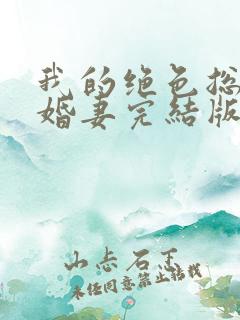 我的绝色总
婚妻完结版
山志石王
未经同意禁止转载